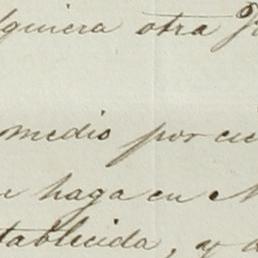 lquiera otra
medio por ci
haga en
tablecida, y